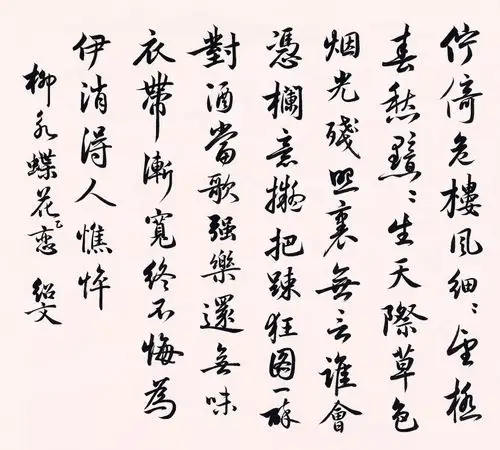 佇倚危樓風細〻望極
春愁黯〻生天際草色
烟光殘照裏無言誰會
憑欄意擬把踈狂圖一醉
對酒當歌强樂還無味
衣帶漸寬終不悔為
伊消得人憔悴
柳永蝶花恋 紹文